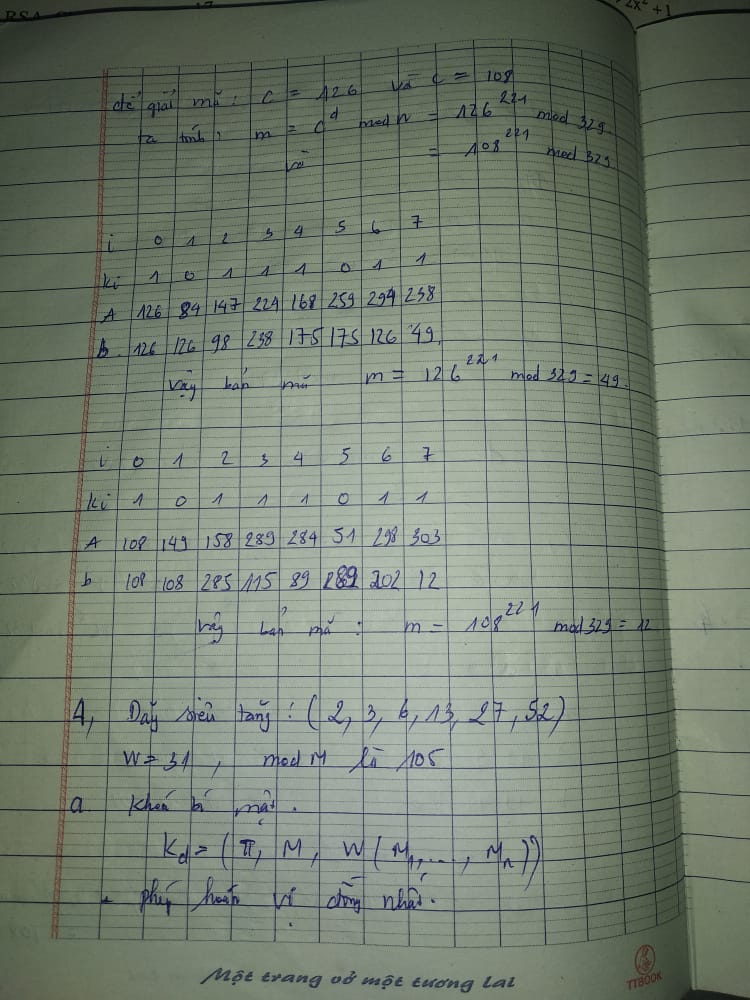 RSA
2x² + 1
để giải mã: C = 126 và C = 108
ta tính: m = C^d mod N = 126^221 mod 329
và = 108^221 mod 329
i 0 1 2 3 4 5 6 7
ki 1 0 1 1 1 0 1 1
A 126 84 147 224 168 259 294 238
b 126 126 98 238 175 175 126 49.
vậy bản mã m = 126^221 mod 329 = 49.
i 0 1 2 3 4 5 6 7
ki 1 0 1 1 1 0 1 1
A 108 149 158 289 284 51 298 303
b 108 108 285 115 89 289 202 12
vậy bản mã: m = 108^221 mod 329 = 12
4, Dãy siêu tăng: (2, 3, 6, 13, 27, 52)
W = 31, mod M là 105
a Khoá bí mật.
Kd = (π, M, W (M1,..., Mn))
- phép hoán vị đồng nhất.
Một trang vở một tương lai
TTBOOK